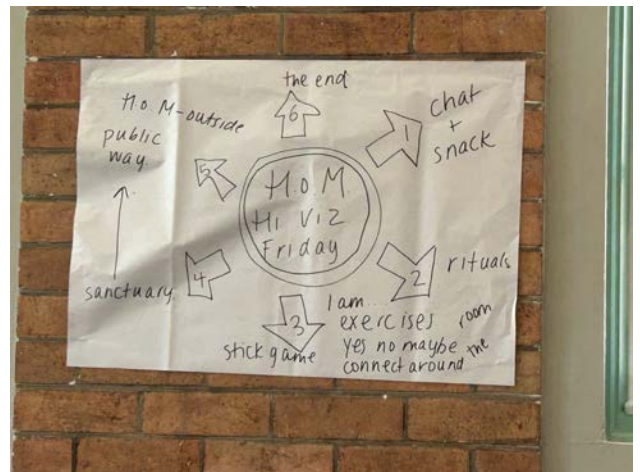 H.O.M.
Hi Viz
Friday
1
chat
+
snack
2
rituals
I am....
exercises
Yes no maybe
connect around the room
3
stick game
4
sanctuary
5
H.O.M-outside
public
way
6
the end